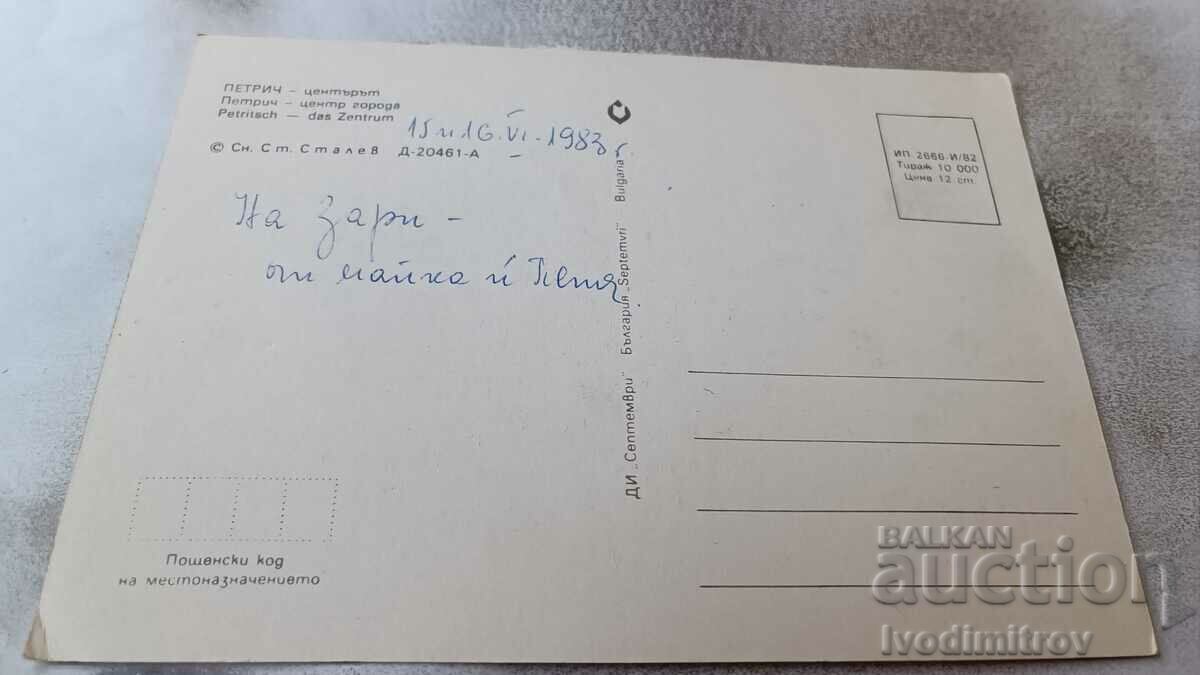 ПЕТРИЧ – центърът
Петрич – центр города
Petritsch — das Zentrum
© Сн. Ст. Сталев Д-20461-А
15 и 16. VI. 1983 г.
На Зари –
от майка и Петя
ДИ „Септември" България „Septemvri" Bulgaria
ИП 2666-И/82
Тираж 10 000
Цена 12 ст.
Пощенски код
на местоназначението
BALKAN
auction
Ivodimitrov